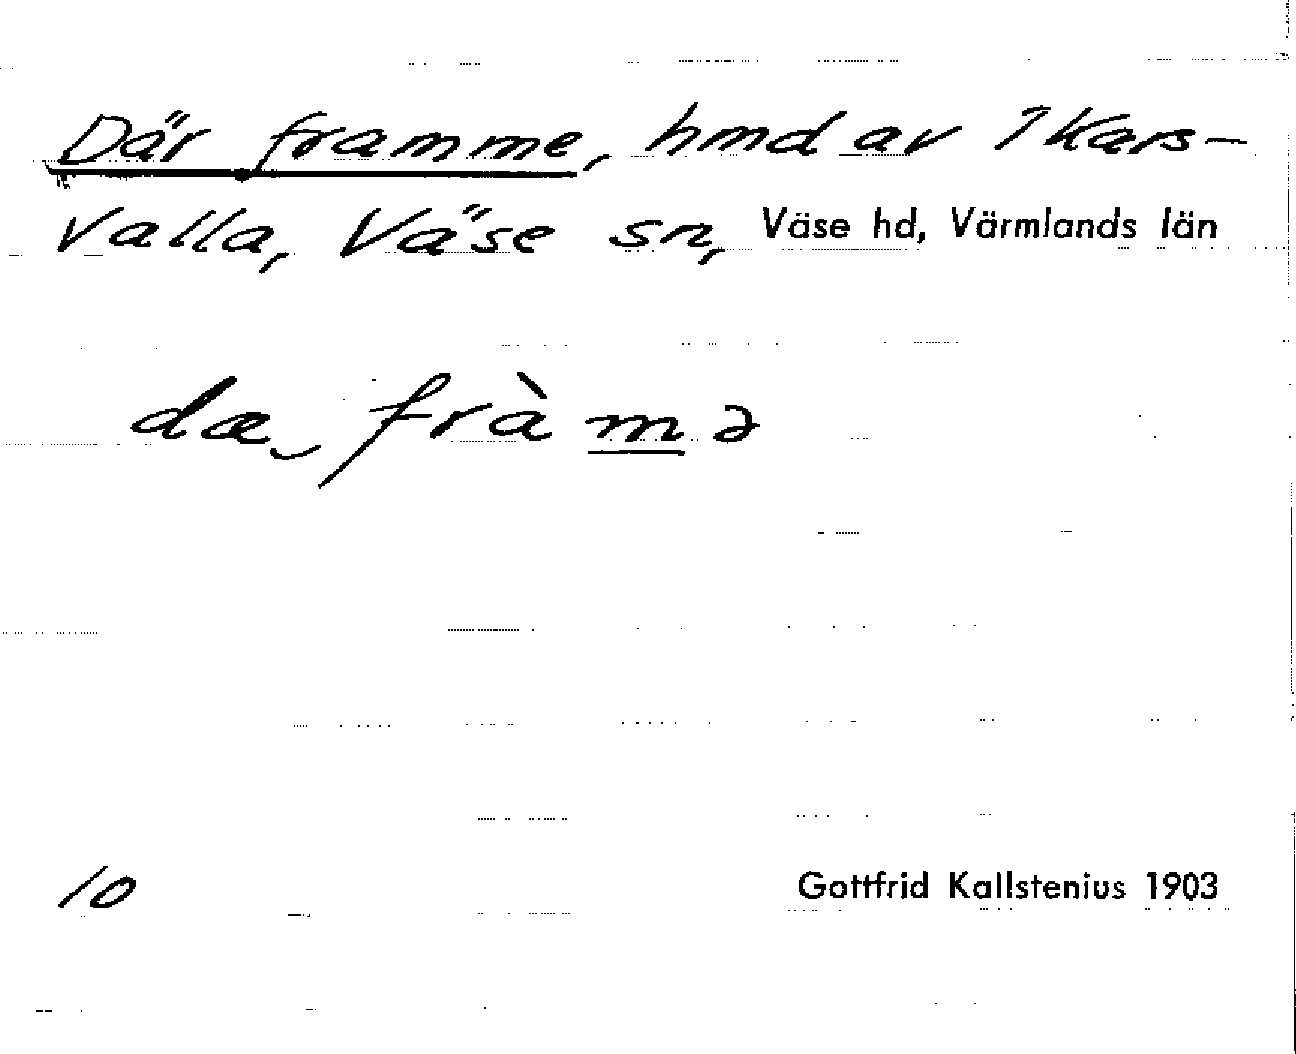 Där framme, hmd av 1 Kars-
valla, Väse sn, Väse hd, Värmlands län
dæ‿ fràmə
10
Gottfrid Kallstenius 1903